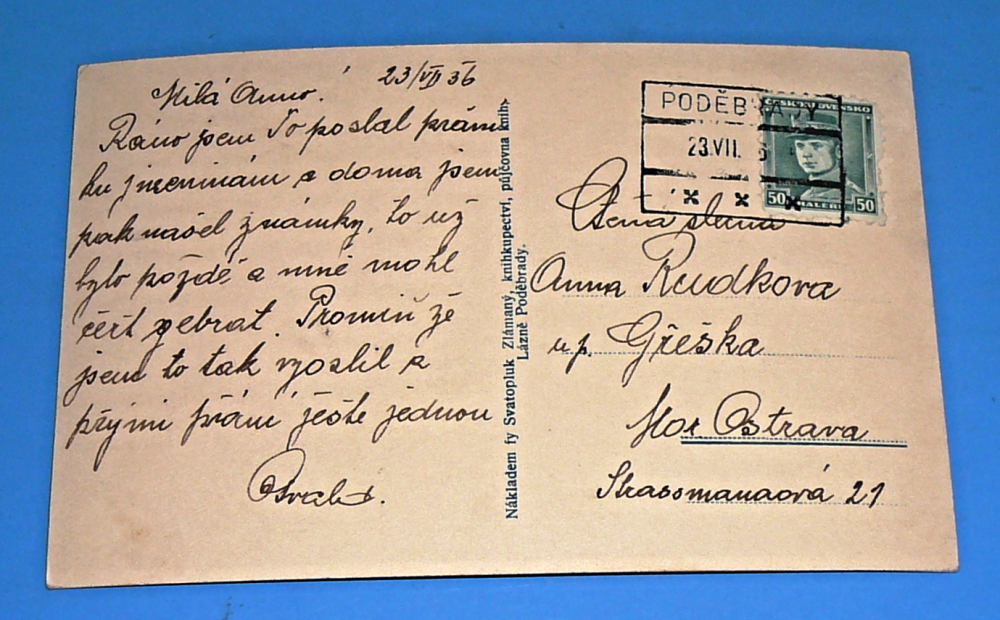 23/VII 36
Milá Anno!
Ráno jsem Ti poslal přání
ku jmeninám a doma jsem
pak našel známky, to už
bylo pozdě a mně mohl
čert sebrat. Promiň že
jsem to tak vyoslil a
přijmi přání ještě jednou
Nákladem fy Svatopluk Zlámaný, knihkupectví, půjčovna knih,
Lázně Poděbrady.
PODĚBRADY
23.VII. 6
x x x
ČESKOSLOVENSKO
50 HALÉŘŮ 50
Ctěná slečna
Anna Rudkova
u p. Gřeška
Mor Ostrava
Strassmanaová 21